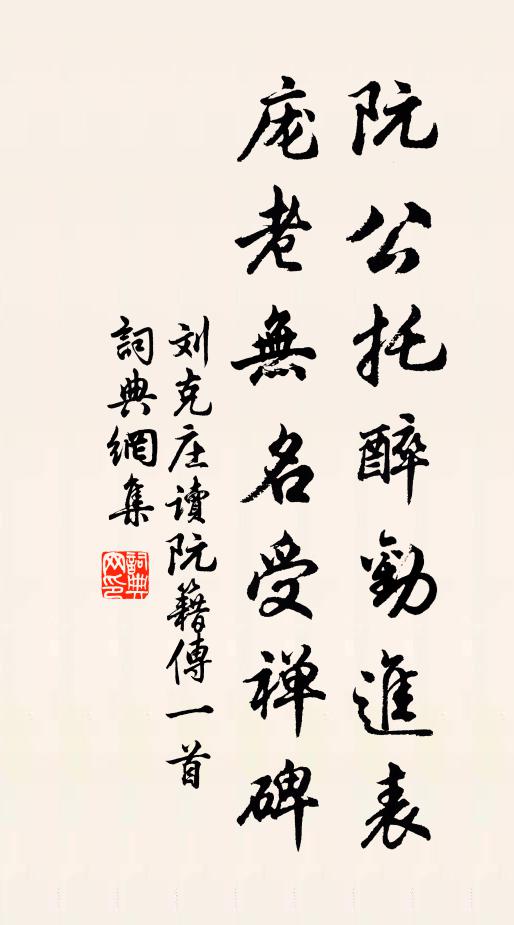 阮公托醉勸進表
庞老無名受禅碑
刘克庄讀阮籍傳一首
詞典網集
詞典网印